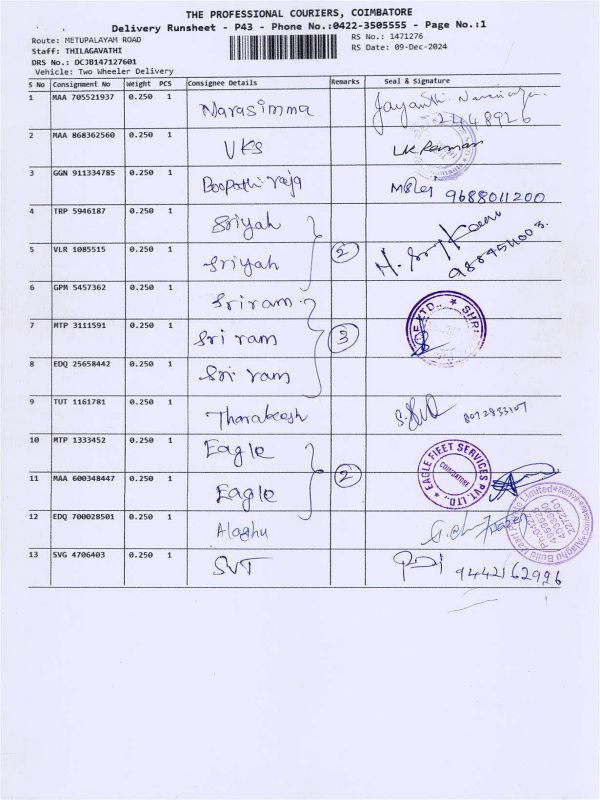 THE PROFESSIONAL COURIERS, COIMBATORE
Delivery Runsheet - P43 - Phone No.:0422-3505555 - Page No.:1
Route: METUPALAYAM ROAD RS No.: 1471276
Staff: THILAGAVATHI RS Date: 09-Dec-2024
DRS No.: DCJB147127601
Vehicle: Two Wheeler Delivery
S No Consignment No Weight PCS Consignee Details Remarks Seal & Signature
1 MAA 705521937 0.250 1 Narasimma Jayanthi
2448926
2 MAA 868362560 0.250 1 VKS
3 GGN 911334785 0.250 1 Boopathi raja 9688011200
4 TRP 5946187 0.250 1 Sriyah
5 VLR 1085515 0.250 1 Sriyah 2
6 GPM 5457362 0.250 1 Sriram
7 MTP 3111591 0.250 1 Sri ram 3
8 EDQ 25658442 0.250 1 Sri ram
9 TUT 1161781 0.250 1 Tharakesh 8072833107
10 MTP 1333452 0.250 1 Eagle
11 MAA 600348447 0.250 1 Eagle 2 EAGLE FlEET SERVICES PVT. LTD., COIMBATORE
12 EDQ 700028501 0.250 1 Alaghu
13 SVG 4706403 0.250 1 SVT 9442162996